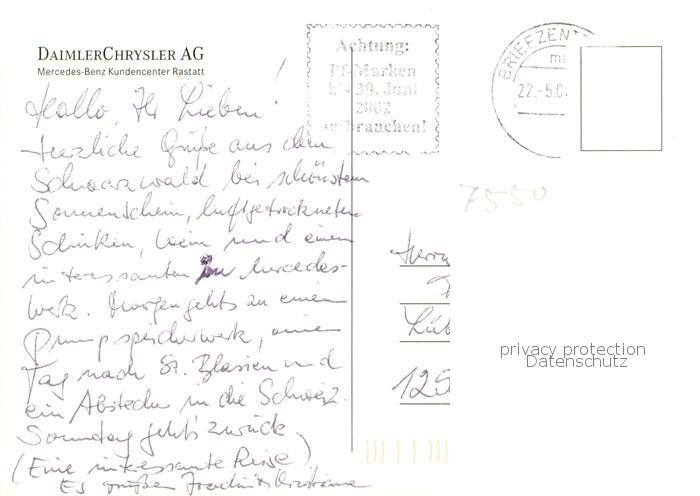 DAIMLERCHRYSLER AG
Mercedes-Benz Kundencenter Rastatt
Achtung:
Pf-Marken
bis 30. Juni
2002
aufbrauchen!
BRIEFZENT
22.-5.0
7550
Hallo, Ihr Lieben!
Herzliche Grüße aus dem
Schwarzwald bei schönstem
Sonnenschein, luftgetrockneten
Schinken, Wein und einem
interessanten Mercedes-
werk. Morgen gehts zu einem
Pumpspeicherwerk, einen
Tag nach St. Blasien und
ein Abstecher in die Schweiz.
Sonntag geht's zurück.
(Eine interessante Reise)
Es grüßen Joachim & Christiane
Herrn
Lüb
125
privacy protection
Datenschutz